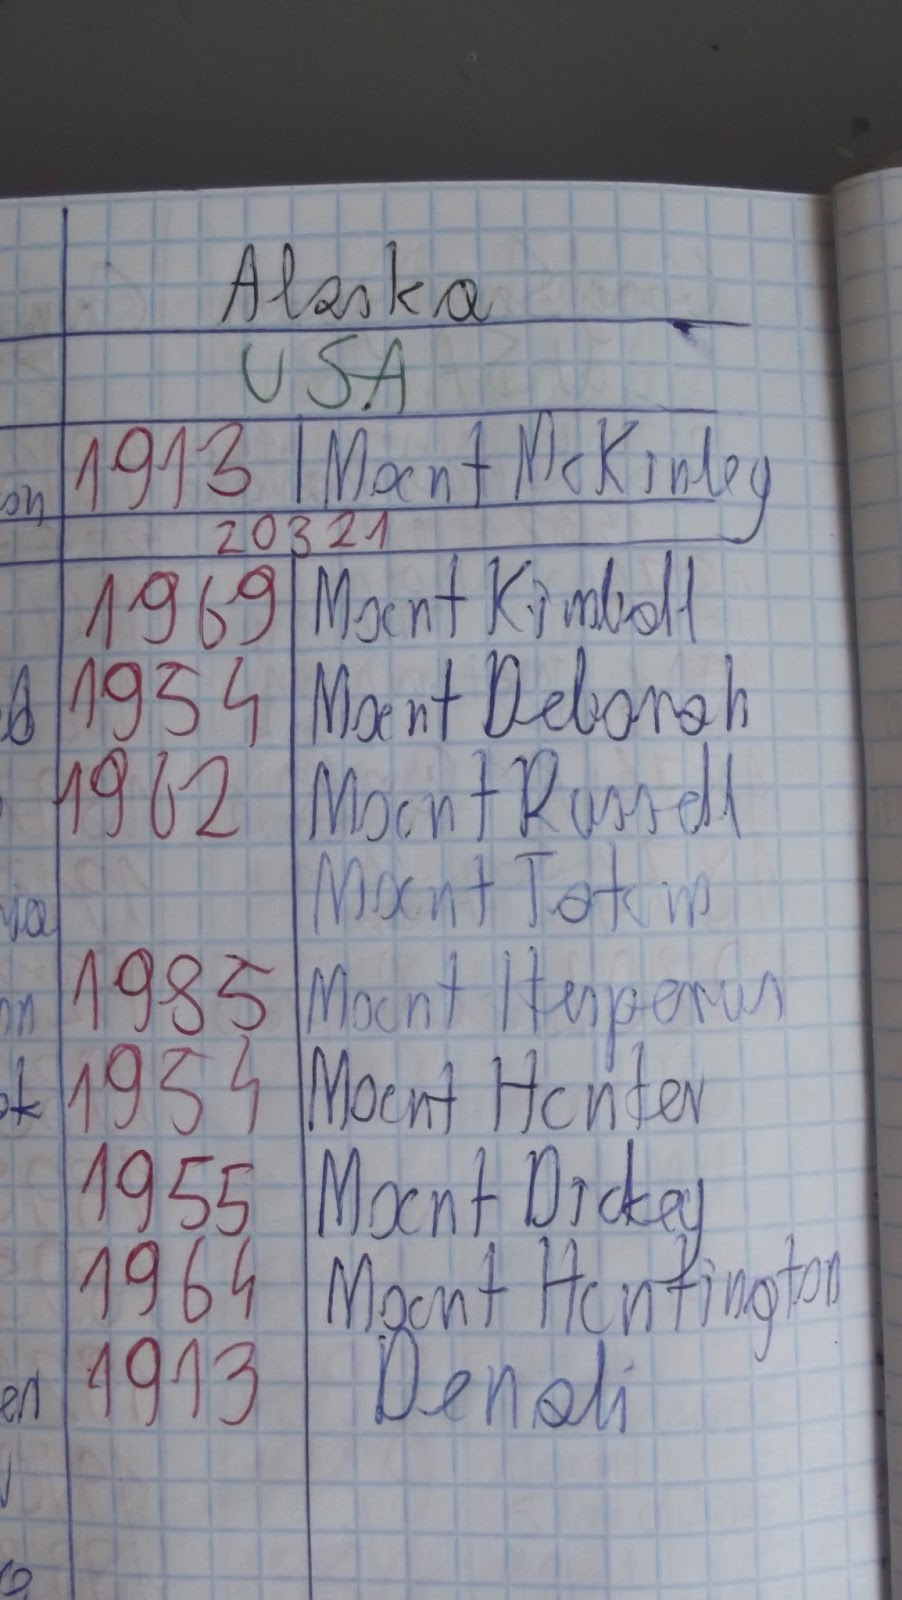 Alaska
USA
1913 Mount McKinley
20321
1969 Mount Kimball
1954 Mount Deborah
1962 Mount Russell
Mount Tatum
1985 Mount Hesperus
1954 Mount Hunter
1955 Mount Dickey
1964 Mount Huntington
1913 Denali